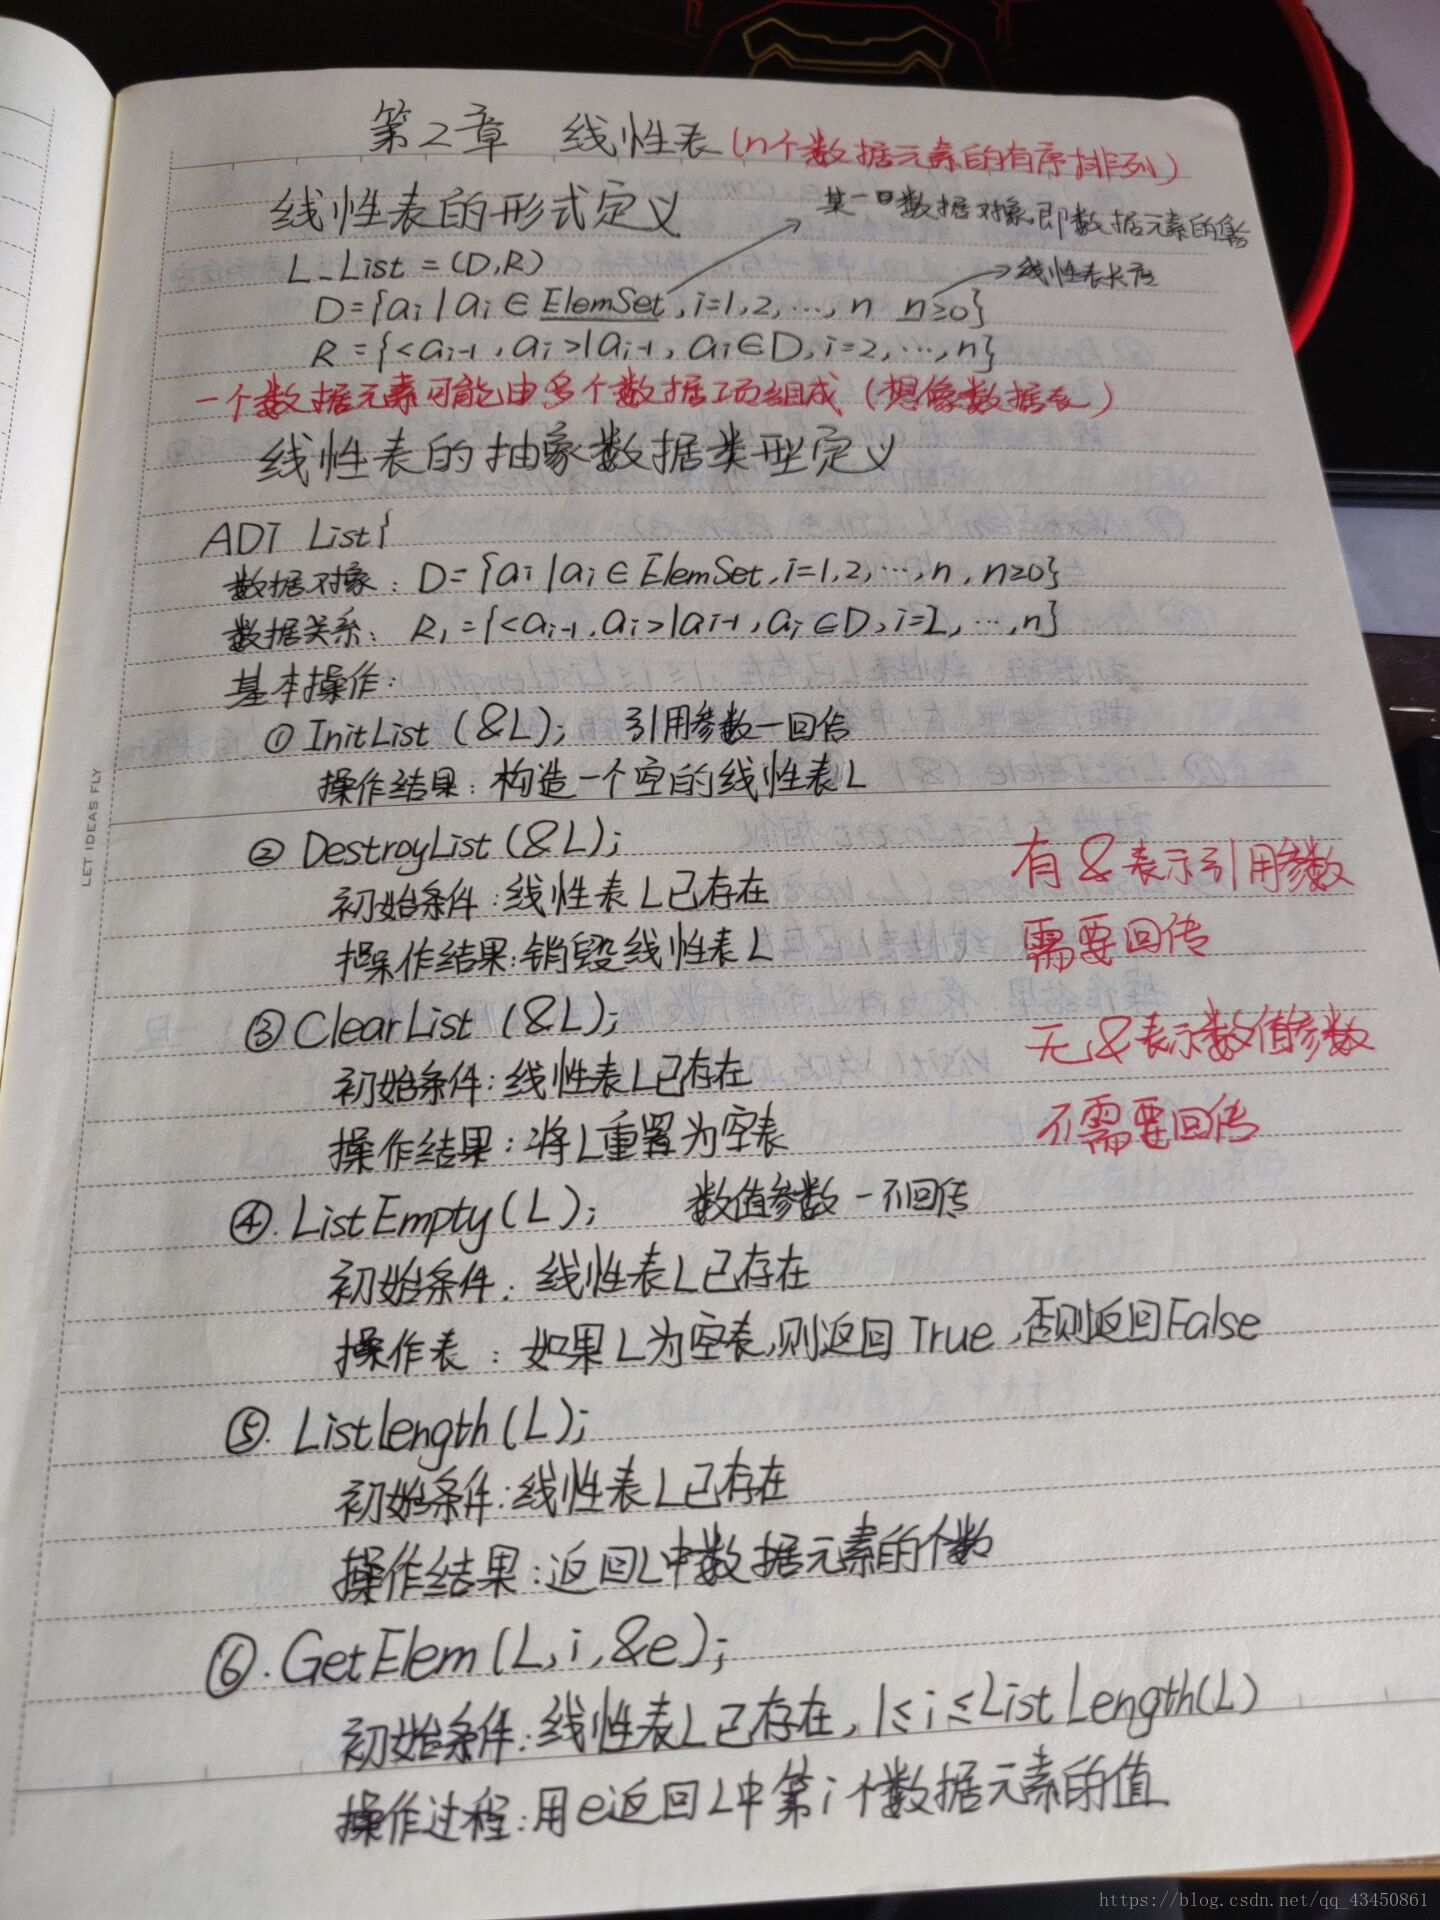 第2章 线性表(n个数据元素的有序排列)
线性表的形式定义
某一数据对象,即数据元素的集合
L_List = (D,R)
线性表长度
D={ai | ai ∈ ElemSet, i=1,2,…,n n≥0}
R={<ai-1, ai>|ai-1, ai∈D, i=2,…,n}
一个数据元素可能由多个数据项组成(想像数据表)
线性表的抽象数据类型定义
ADT List{
数据对象: D={ai | ai ∈ ElemSet, i=1,2,…,n, n≥0}
数据关系: R1={<ai-1, ai>|ai-1, ai∈D, i=2,…,n}
基本操作:
① InitList (&L); 引用参数—回传
操作结果: 构造一个空的线性表L
② DestroyList (&L);
初始条件: 线性表L已存在
操作结果: 销毁线性表L
有&表示引用参数
需要回传
③ ClearList (&L);
初始条件: 线性表L已存在
操作结果: 将L重置为空表
无&表示数值参数
不需要回传
④. ListEmpty(L); 数值参数—不回传
初始条件: 线性表L已存在
操作表: 如果L为空表,则返回True,否则返回False
⑤. Listlength(L);
初始条件: 线性表L已存在
操作结果: 返回L中数据元素的个数
⑥. GetElem(L,i,&e);
初始条件: 线性表L已存在, 1≤i≤ListLength(L)
操作过程: 用e返回L中第i个数据元素的值
LET IDEAS FLY
https://blog.csdn.net/qq_43450861